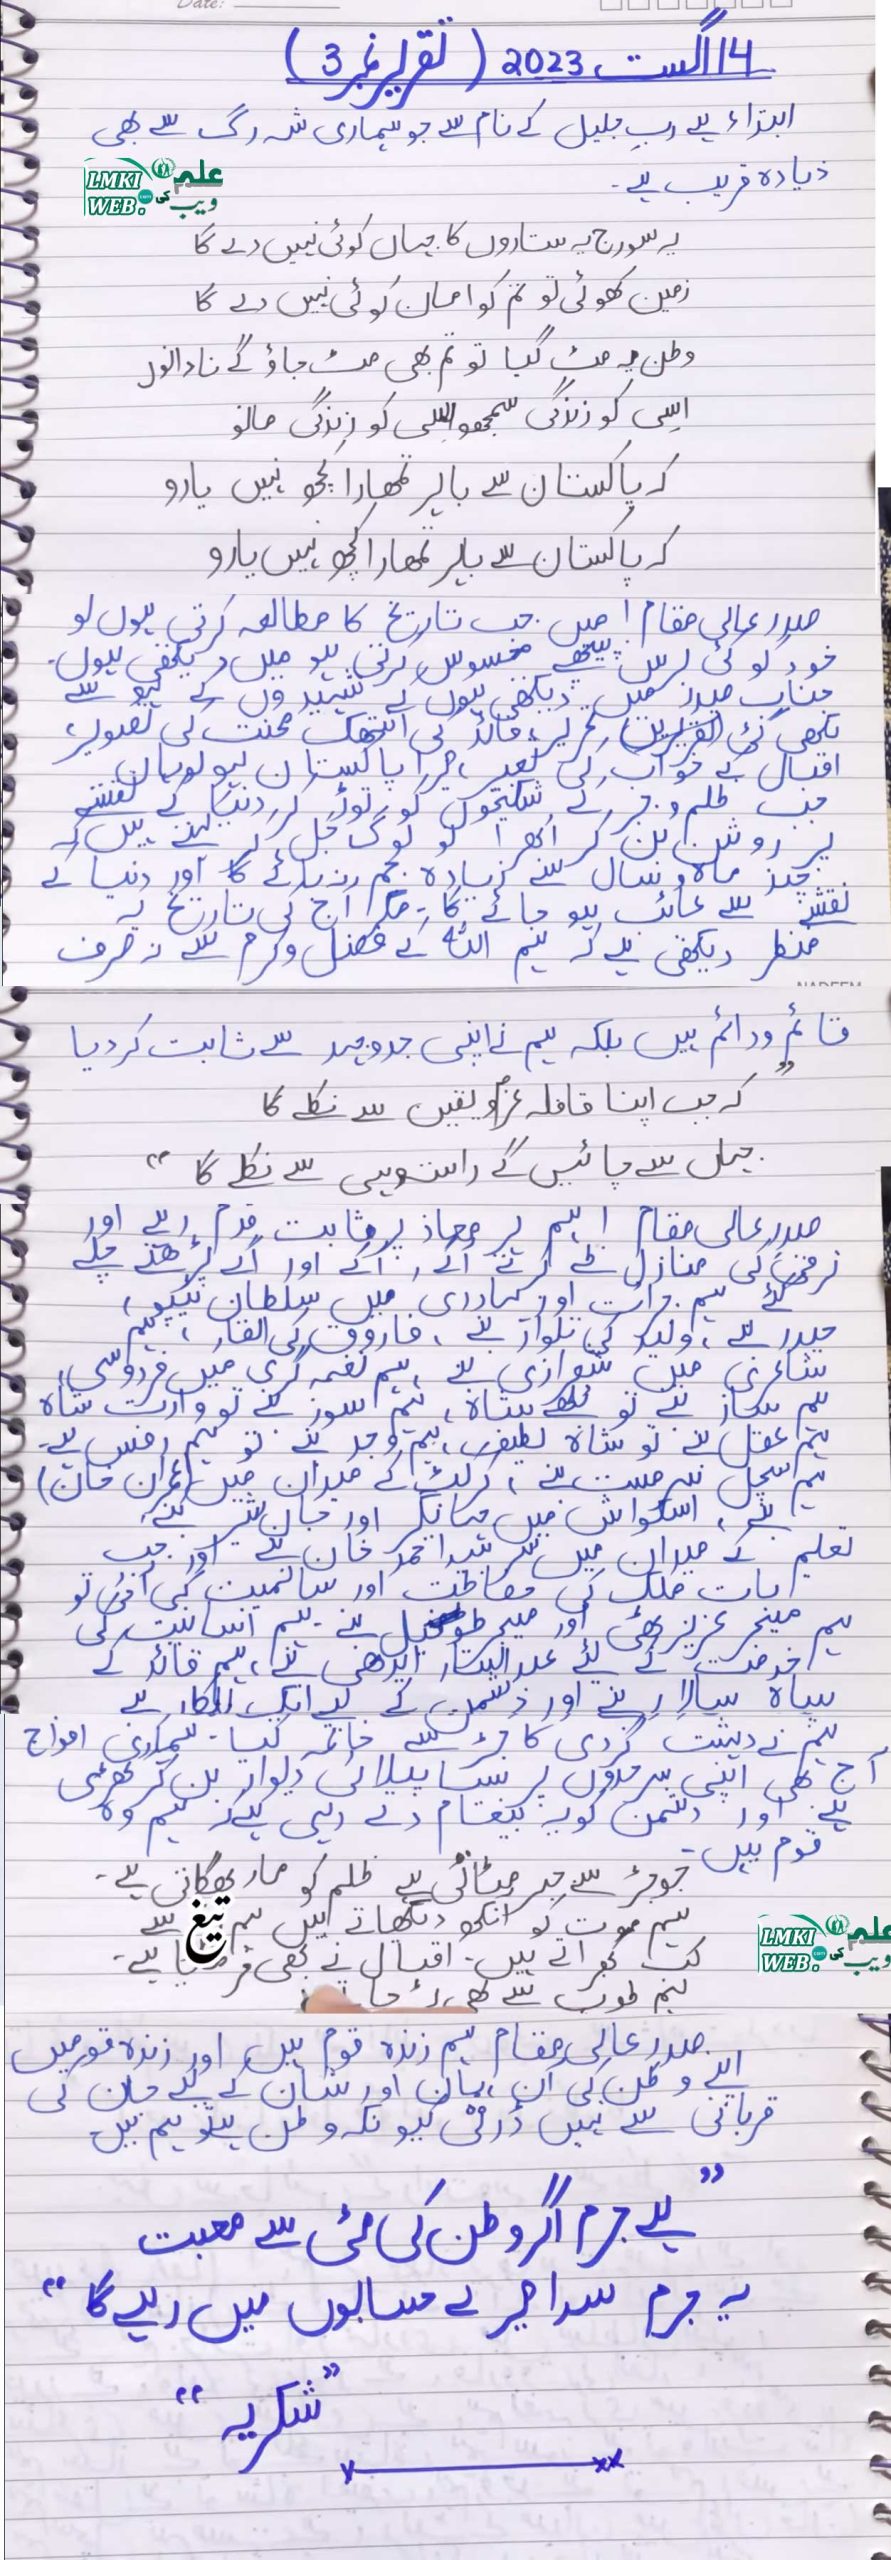 Date:
14 اگست 2023 (تقریر نمبر 3)
ابتداء ہے ربِ جلیل کے نام سے جو ہماری شہ رگ سے بھی
زیادہ قریب ہے۔
LMKI WEB.com علم کی ویب
یہ سورج یہ ستاروں کا جہاں کوئی نہیں دے گا
زمین کھوئی تو تم کو امان کوئی نہیں دے گا
وطن یہ مٹ گیا تو تم بھی مٹ جاؤ گے نادانوں
اسی کو زندگی سمجھو اسی کو زندگی مانو
کہ پاکستان سے باہر تمھارا کچھ نہیں یارو
کہ پاکستان سے باہر تمھارا کچھ نہیں یارو
صدر عالی مقام! میں جب تاریخ کا مطالعہ کرتی ہوں تو
خود کو کئی برس پیچھے محسوس کرتی ہو میں دیکھتی ہوں۔
جناب صدر میں دیکھتی ہوں کے شہیدوں کے لہو سے
لکھی گئی تحریر، قائد کی انتھک محنت کی تصویر،
اقبال کے خواب کی تعبیر، میرا پاکستان لہو لوہان
جب ظلم و جبر کے شکنجوں کو توڑ کر دنیا کے نقشے
پر روشن بن کر ابھرا تو لوگ کہتے ہیں کہ
چند ماہ و سال سے زیادہ جم نہ پائے گا اور دنیا کے
نقشے سے غائب ہو جائے گا۔ مگر آج کی تاریخ یہ
منظر دیکھتی ہے کہ ہم اللہ کے فضل و کرم سے نہ صرف
NADEEM
قائم و دائم ہیں بلکہ ہم نے اپنی جدوجہد سے ثابت کر دیا
"کہ جب اپنا قافلہ عزم و یقیں سے نکلے گا
جہاں سے چاہیں گے راستہ وہی سے نکلے گا"
صدر عالی مقام! ہم ہر محاذ پر ثابت قدم رہے اور
ترقی کی منازل طے کرتے آئے، آگے اور آگے بڑھتے چلے
گئے ہم جرات اور بہادری میں سلطان ٹیپو،
حیدر بنے، ولید کی تلوار بنے، فاروق کی للقار، ہم
شاعری میں شیرازی بنے، ہم نغمہ گری میں فردوسی،
ہم مجاز بنے تو بلھے شاہ، ہم سوز بنے تو وارث شاہ
ہم عقل بنے تو شاہ لطیف، ہم وجد بنے تو ہم رقص بنے۔
ہم سچل سرمست بنے، کرکٹ کے میدان میں (عمران خان)
بنے، اسکواش میں جہانگیر اور جان شیر بنے،
تعلیم کے میدان میں سر سید احمد خان بنے اور جب
بات ملک کی حفاظت اور سالمیت کی آئی تو
ہم میجر عزیز بھٹی اور میجر طفیل بنے۔ ہم انسانیت کی
خدمت کے لئے عبدالستار ایدھی بنے، ہم قائد کے
سپاہ سالار بنے اور دشمن کے لیے ایک للکار بنے
ہم نے دہشت گردی کا جڑ سے خاتمہ کیا۔ ہماری افواج
آج بھی اپنی سرحدوں پر سیسا پیلائی دیوار بن کر کھڑی
ہے اور دشمن کو یہ پیغام دے رہی ہے کہ ہم وہ
قوم ہیں۔
جو جڑ سے جبر مٹاتی ہے ظلم کو مار بھگاتی ہے۔
ہم موت کو آنکھ دیکھاتے ہیں ہم تیغ سے
کب گھبراتے ہیں۔ اقبال نے بھی فرمایا ہے۔
ہم توپ سے بھی
LMKI WEB.com علم کی ویب
صدر عالی مقام ہم زندہ قوم ہیں اور زندہ قومیں
اپنے وطن کی آن، بان اور شان کے لیے جان کی
قربانی سے نہیں ڈرتی کیونکہ وطن ہے تو ہم ہیں۔
"ہے جرم اگر وطن کی مٹی سے محبت
یہ جرم سدا میرے حسابوں میں رہے گا"
"شکریہ"